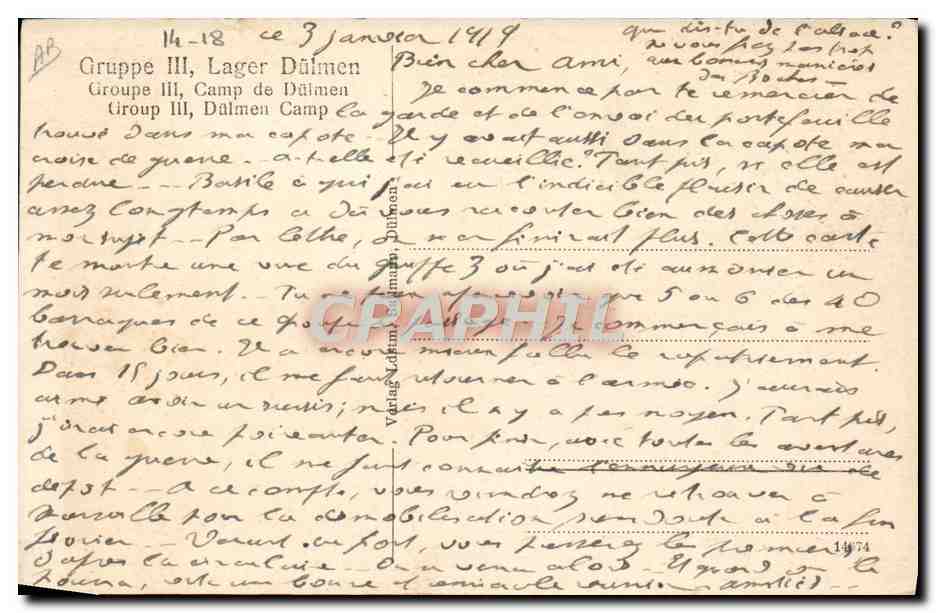 14-18 ce 3 janvier 1919
que dis-tu de l'alsace?
ne vous fiez pas trop
aux bonnes manières
des Boches
AB
Gruppe III, Lager Dülmen
Groupe III, Camp de Dülmen
Group III, Dülmen Camp
Bien cher ami,
Je commence par te remercier de
la garde et de l'envoi du portefeuille
trouvé dans ma capote. Il y avait aussi dans la capote ma
croix de guerre - a-t-elle été recueillie? Tant pis, si elle est
perdue - Basile à qui j'ai eu l'indicible plaisir de causer
assez longtemps a dû vous raconter bien des choses à
mon sujet - Par lettre, on n'en finirait plus. Cette carte
te montre une vue du groupe 3 où j'ai été aumônier un
mois seulement - Tu ne que 5 ou 6 des 40
barraques de ce groupe Je commençais à me
trouver bien. Il a falloir le rapatriement.
Dans 15 jours, il me faut retourner à l'armée. J'aurais
aimé avoir un sursis; mais il n'y a pas moyen. Tant pis,
j'irai encore Pour finir, avec toutes les aventures
de la guerre, il me faut connaître l'ennuyeuse vie de
dépôt - A ce compte, vous viendrez me retrouver à
pour la démobilisation sans doute à la fin
février - vous passerez les premiers
d'après la circulaire - On a venu alors - Et quand on le
pourra, une bonne et amicale réunion - amitiés -
Verlag Ldstm. Dülmen.
14674
CRAPHIL